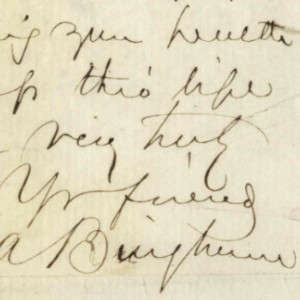 ing your health
of this life
very truly
Yr friend
a Bingham